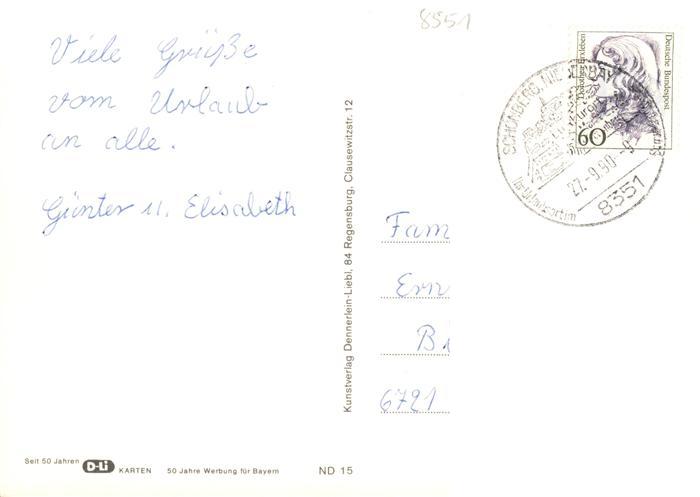 8351
Viele Grüße
vom Urlaub
an alle.
Günter u. Elisabeth
Kunstverlag Dennerlein-Liebl, 84 Regensburg, Clausewitzstr. 12
Deutsche Bundespost
60
SCHÖNBERG, NIEDERBAY
27.-9.90.-9
8351
Fam
Ern
Bi
6721
Seit 50 Jahren D-Li KARTEN 50 Jahre Werbung für Bayern ND 15